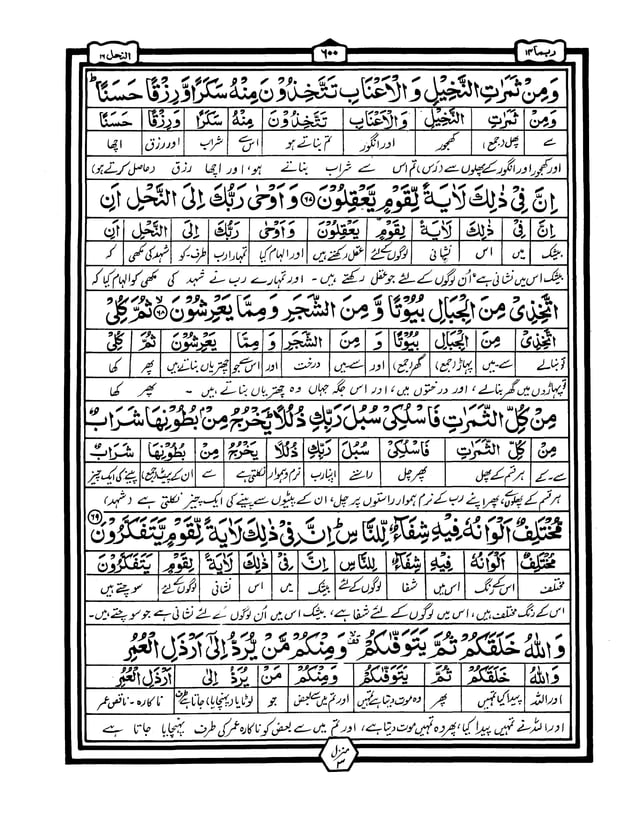 ربما ۱۴ ۶۰۰ النحل ۱۶
وَمِنْ ثَمَرٰتِ النَّخِيْلِ وَالْاَعْنَابِ تَتَّخِذُوْنَ مِنْهُ سَكَرًا وَّرِزْقًا حَسَنًا ؕ
وَمِنْ ثَمَرٰتِ النَّخِيْلِ وَالْاَعْنَابِ تَتَّخِذُوْنَ مِنْهُ سَكَرًا وَّرِزْقًا حَسَنًا
سے پھل (جمع) کھجور اور انگور تم بناتے ہو اس سے شراب اور رزق اچھا
اور کھجور اور انگور کے پھلوں سے (رَس) تم اس سے شراب بناتے ہو، اور اچھا رزق (حاصل کرتے ہو)
اِنَّ فِیْ ذٰلِكَ لَاٰیَةً لِّقَوْمٍ یَّعْقِلُوْنَ ۶۷ وَاَوْحٰی رَبُّكَ اِلَی النَّحْلِ اَنِ
اِنَّ فِیْ ذٰلِكَ لَاٰیَةً لِّقَوْمٍ یَّعْقِلُوْنَ وَاَوْحٰی رَبُّكَ اِلَی النَّحْلِ اَنِ
بیشک میں اس نشانی لوگوں کے لئے عقل رکھتے ہیں اور الہام کیا تمہارا رب طرف۔کو شہد کی مکھی کہ
بیشک اس میں نشانی ہے اُن لوگوں کے لئے جو عقل رکھتے ہیں۔ اور تمہارے رب نے شہد کی مکھی کو الہام کیا کہ
اتَّخِذِیْ مِنَ الْجِبَالِ بُیُوْتًا وَّ مِنَ الشَّجَرِ وَمِمَّا یَعْرِشُوْنَ ۶۸ ثُمَّ كُلِیْ
اتَّخِذِیْ مِنَ الْجِبَالِ بُیُوْتًا وَّ مِنَ الشَّجَرِ وَمِمَّا یَعْرِشُوْنَ ثُمَّ كُلِیْ
تو بنالے سے۔میں پہاڑ (جمع) گھر (جمع) اور سے۔میں درخت اور اس سے جو چھتریاں بناتے ہیں پھر کھا
تو پہاڑوں میں گھر بنالے، اور درختوں میں، اور اس جگہ جہاں وہ چھتریاں بناتے ہیں۔ پھر کھا
مِنْ كُلِّ الثَّمَرٰتِ فَاسْلُكِیْ سُبُلَ رَبِّكِ ذُلُلًا ؕ یَخْرُجُ مِنْۢ بُطُوْنِهَا شَرَابٌ
مِنْ كُلِّ الثَّمَرٰتِ فَاسْلُكِیْ سُبُلَ رَبِّكِ ذُلُلًا یَخْرُجُ مِنْ بُطُوْنِهَا شَرَابٌ
سے۔کے ہر قسم کے پھل پھر چل راستے اپنا رب نرم و ہموار نکلتی ہے سے ان کے پیٹ (جمع) پینے کی ایک چیز
ہر قسم کے پھلوں سے، پھر اپنے رب کے نرم ہموار راستوں پر چل، ان کے پیٹوں سے پینے کی ایک چیز نکلتی ہے (شہد)
مُّخْتَلِفٌ اَلْوَانُهٗ فِیْهِ شِفَآءٌ لِّلنَّاسِ ؕ اِنَّ فِیْ ذٰلِكَ لَاٰیَةً لِّقَوْمٍ یَّتَفَكَّرُوْنَ ۶۹
مُخْتَلِفٌ اَلْوَانُهٗ فِیْهِ شِفَآءٌ لِّلنَّاسِ اِنَّ فِیْ ذٰلِكَ لَاٰیَةً لِّقَوْمٍ یَّتَفَكَّرُوْنَ
مختلف اس کے رنگ اس میں شفا لوگوں کے لئے بیشک میں اس نشانی لوگوں کے لئے سوچتے ہیں
اس کے رنگ مختلف ہیں، اس میں لوگوں کے لئے شفا ہے، بیشک اس میں اُن لوگوں کے لئے نشانی ہے جو سوچتے ہیں۔
وَاللّٰهُ خَلَقَكُمْ ثُمَّ یَتَوَفّٰىكُمْ ۙ وَمِنْكُمْ مَّنْ یُّرَدُّ اِلٰۤی اَرْذَلِ الْعُمُرِ
وَاللّٰهُ خَلَقَكُمْ ثُمَّ یَتَوَفّٰىكُمْ وَمِنْكُمْ مَنْ یُرَدُّ اِلٰی اَرْذَلِ الْعُمُرِ
اور اللہ پیدا کیا تمہیں پھر وہ موت دیتا ہے تمہیں اور تم میں سے بعض جو لوٹایا (پہنچایا) جاتا ہے طرف ناکارہ۔ناقص عمر
اور اللہ نے تمہیں پیدا کیا، پھر وہ تمہیں موت دیتا ہے، اور تم میں سے بعض کو ناکارہ عمر کی طرف پہنچایا جاتا ہے
منزل ۳